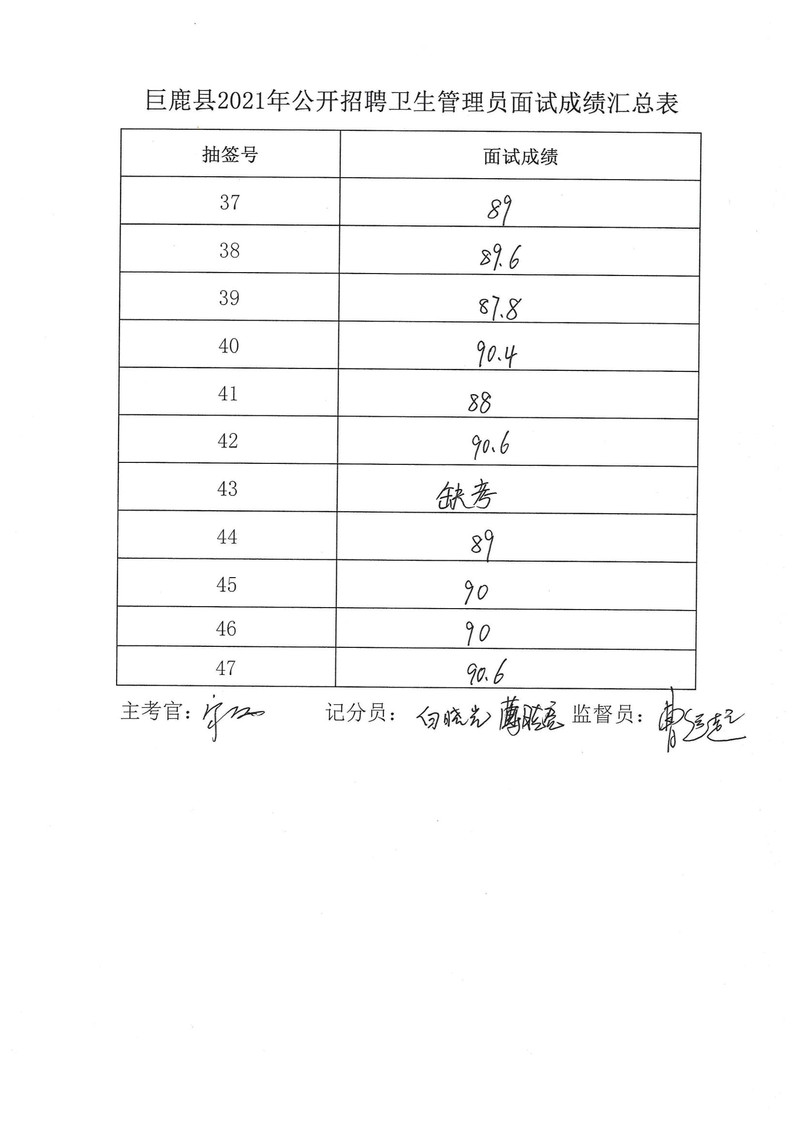 巨鹿县2021年公开招聘卫生管理员面试成绩汇总表
抽签号 面试成绩
37 89
38 89.6
39 87.8
40 90.4
41 88
42 90.6
43 缺考
44 89
45 90
46 90
47 90.6
主考官: 记分员: 白晓光 监督员: